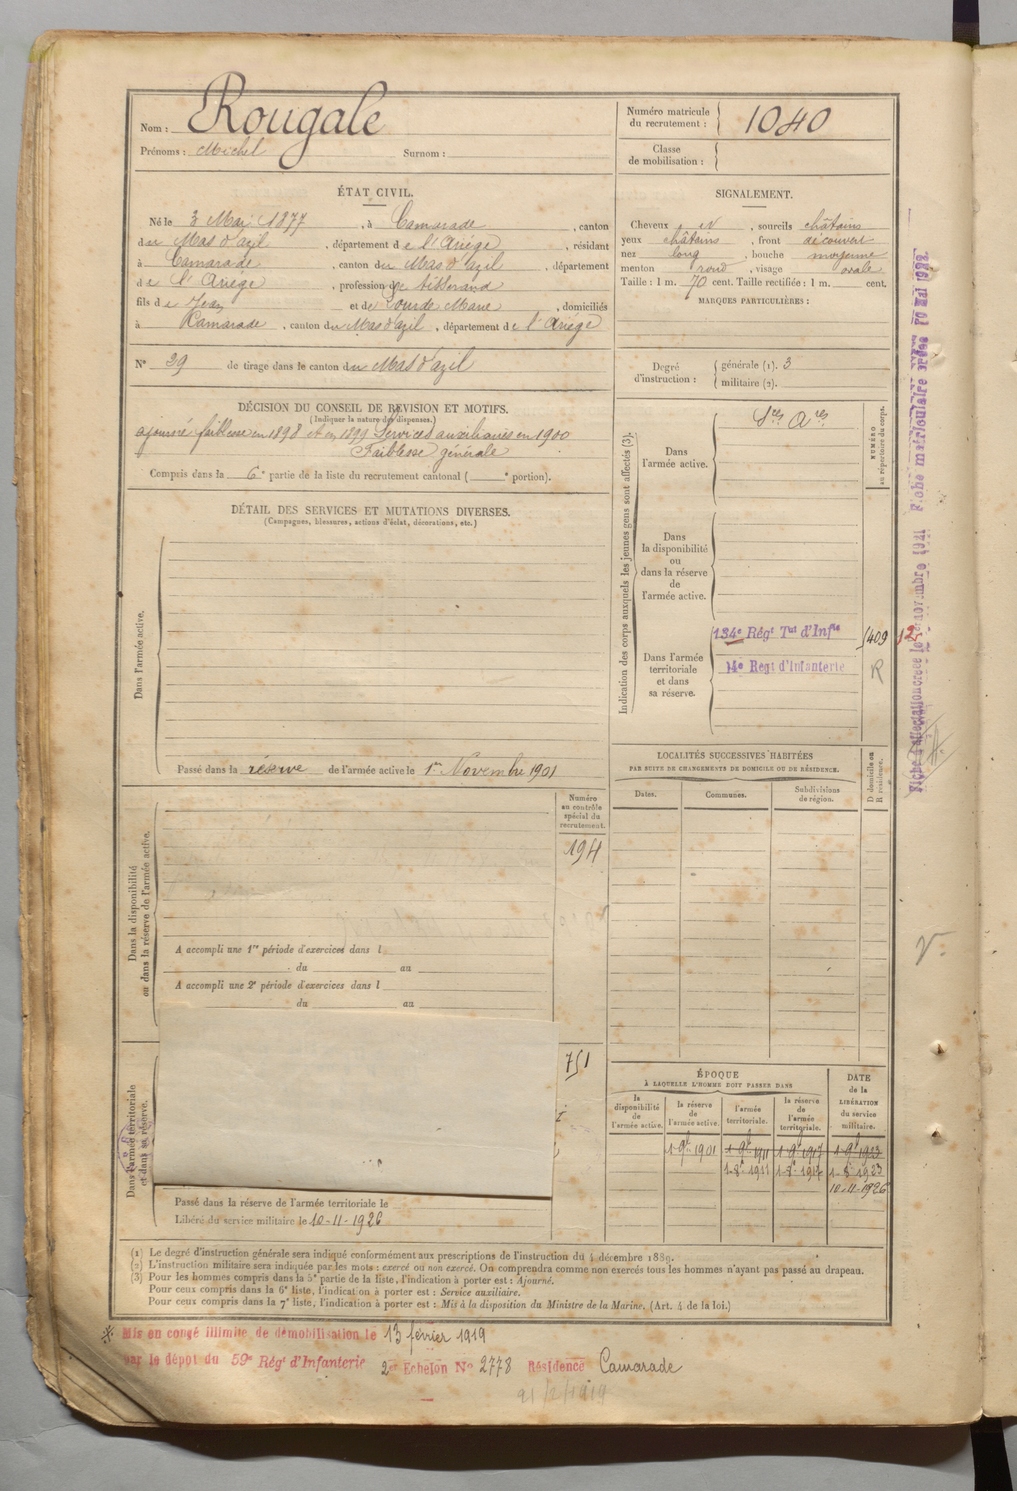 Nom : Rougale
Prénoms : Michel Surnom :
Numéro matricule du recrutement : 1040
Classe de mobilisation :
ÉTAT CIVIL.
Né le 3 Mai 1877, à Camarade, canton
du Mas d'azil, département de l'Ariége, résidant
à Camarade, canton du Mas d'azil, département
de l'Ariége, profession de tisserand
fils de Jean et de Lourde Marie, domiciliés
à Camarade, canton du Mas d'azil, département de l'Ariége
SIGNALEMENT.
Cheveux N, sourcils châtains
yeux châtains, front découvert
nez long, bouche moyenne
menton rond, visage ovale
Taille : 1 m. 70 cent. Taille rectifiée : 1 m. cent.
MARQUES PARTICULIÈRES :
N° 29 de tirage dans le canton du Mas d'azil
Degré d'instruction : générale (1). 3
militaire (2).
DÉCISION DU CONSEIL DE RÉVISION ET MOTIFS.
(Indiquer la nature des dispenses.)
ajourné faiblesse en 1898 et en 1899 Services auxiliaires en 1900
Faiblesse générale
Compris dans la 6e partie de la liste du recrutement cantonal ( e portion).
DÉTAIL DES SERVICES ET MUTATIONS DIVERSES.
(Campagnes, blessures, actions d'éclat, décorations, etc.)
Dans l'armée active.
Passé dans la réserve de l'armée active le 1er Novembre 1901
Indication des corps auxquels les jeunes gens sont affectés (3).
Dans l'armée active.
Sces Ares
NUMÉRO au répertoire du corps.
Dans la disponibilité ou dans la réserve de l'armée active.
Dans l'armée territoriale et dans sa réserve.
134e Régt Tal d'Infie
1409
12
14e Regt d'Infanterie
R
LOCALITÉS SUCCESSIVES HABITÉES
PAR SUITE DE CHANGEMENTS DE DOMICILE OU DE RÉSIDENCE.
Dates. Communes. Subdivisions de région.
D domicile ou R résidence.
Dans la disponibilité ou dans la réserve de l'armée active.
Numéro au contrôle spécial du recrutement.
194
A accompli une 1re période d'exercices dans l
du au
A accompli une 2e période d'exercices dans l
du au
751
Dans l'armée territoriale et dans sa réserve.
Passé dans la réserve de l'armée territoriale le
Libéré du service militaire le 10-11-1926
ÉPOQUE
À LAQUELLE L'HOMME DOIT PASSER DANS
la disponibilité de l'armée active.
la réserve de l'armée active.
l'armée territoriale.
la réserve de l'armée territoriale.
DATE de la LIBÉRATION du service militaire.
1-9bre 1901 1-9bre 1911 1-9bre 1917 1-9bre 1923
1-8bre 1911 1-8bre 1917 1-8bre 1923
10-11-1926
(1) Le degré d'instruction générale sera indiqué conformément aux prescriptions de l'instruction du 4 décembre 1889.
(2) L'instruction militaire sera indiquée par les mots : exercé ou non exercé. On comprendra comme non exercés tous les hommes n'ayant pas passé au drapeau.
(3) Pour les hommes compris dans la 5e partie de la liste, l'indication à porter est : Ajourné.
Pour ceux compris dans la 6e liste, l'indication à porter est : Service auxiliaire.
Pour ceux compris dans la 7e liste, l'indication à porter est : Mis à la disposition du Ministre de la Marine. (Art. 4 de la loi.)
Mis en congé illimité de démobilisation le 13 février 1919
par le dépôt du 59e Régt d'Infanterie 2e Echelon No 2778 Résidence Camarade
21/2/1919
Fiche d'affectation créée le novembre 1921 Fiche matriculaire créée 10 Mai 1922